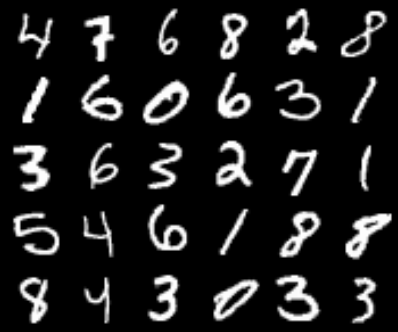 4 7 6 8 2 8
1 6 0 6 3 1
3 6 3 2 7 1
5 4 6 1 8 8
8 4 3 0 3 3